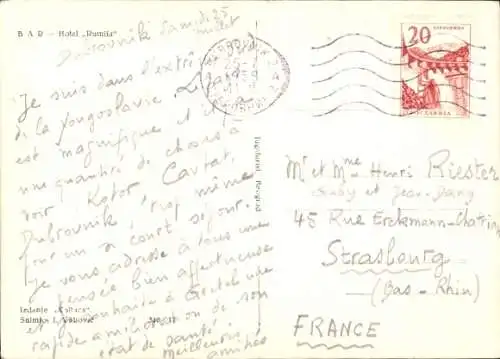 BAR - Hotel „Rumija"
Dubrovnik Samedi 25
juillet
Je suis dans l'extrê
de la Yougoslavie. Le
est magnifique et il y
une quantité de choses à
voir. Kotor, Cavtat,
Dubrovnik, même
pour un court séjour.
Je vous adresse à tous une
pensée bien affectueuse
et souhaite à
rapide amélioration de son
état de santé
Meilleures
amitiés
Izdanje „Putnik"
Jugohotel Beograd
20
JUGOSLAVIJA
Mr et Mme Henri Riester
Suzy et Jean-Jany
45 Rue Erckmann-Chatrian
Strasbourg
(Bas-Rhin)
FRANCE